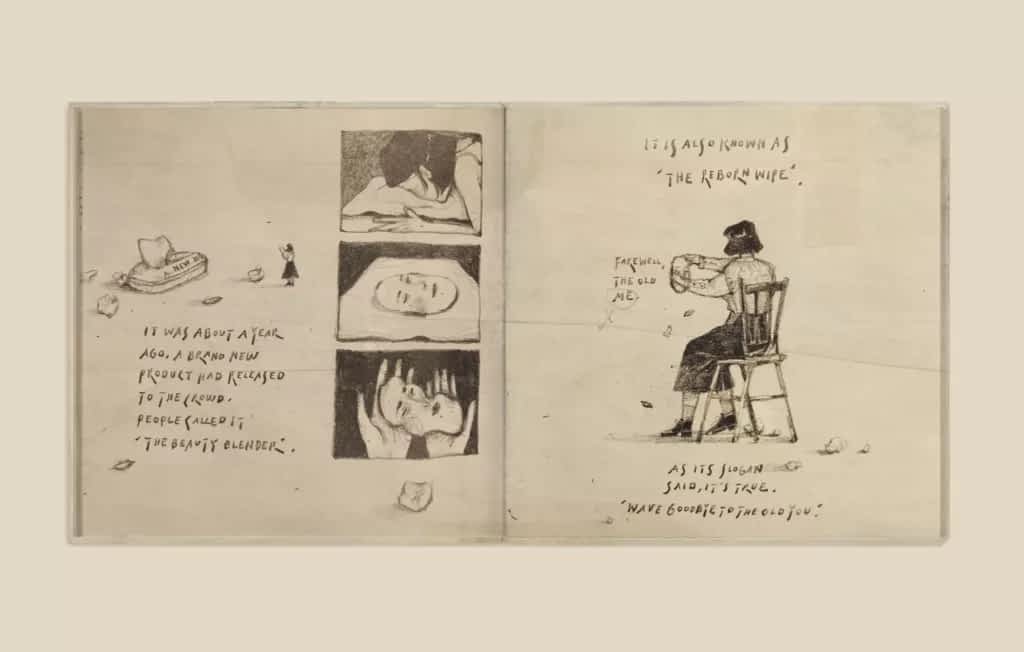 A NEW
IT WAS ABOUT A YEAR
AGO, A BRAND NEW
PRODUCT HAD RELEASED
TO THE CROWD.
PEOPLE CALLED IT
"THE BEAUTY BLENDER".
IT IS ALSO KNOWN AS
"THE REBORN WIPE".
FAREWELL,
THE OLD
ME
AS ITS SLOGAN
SAID, IT'S TRUE.
"WAVE GOODBYE TO THE OLD YOU."